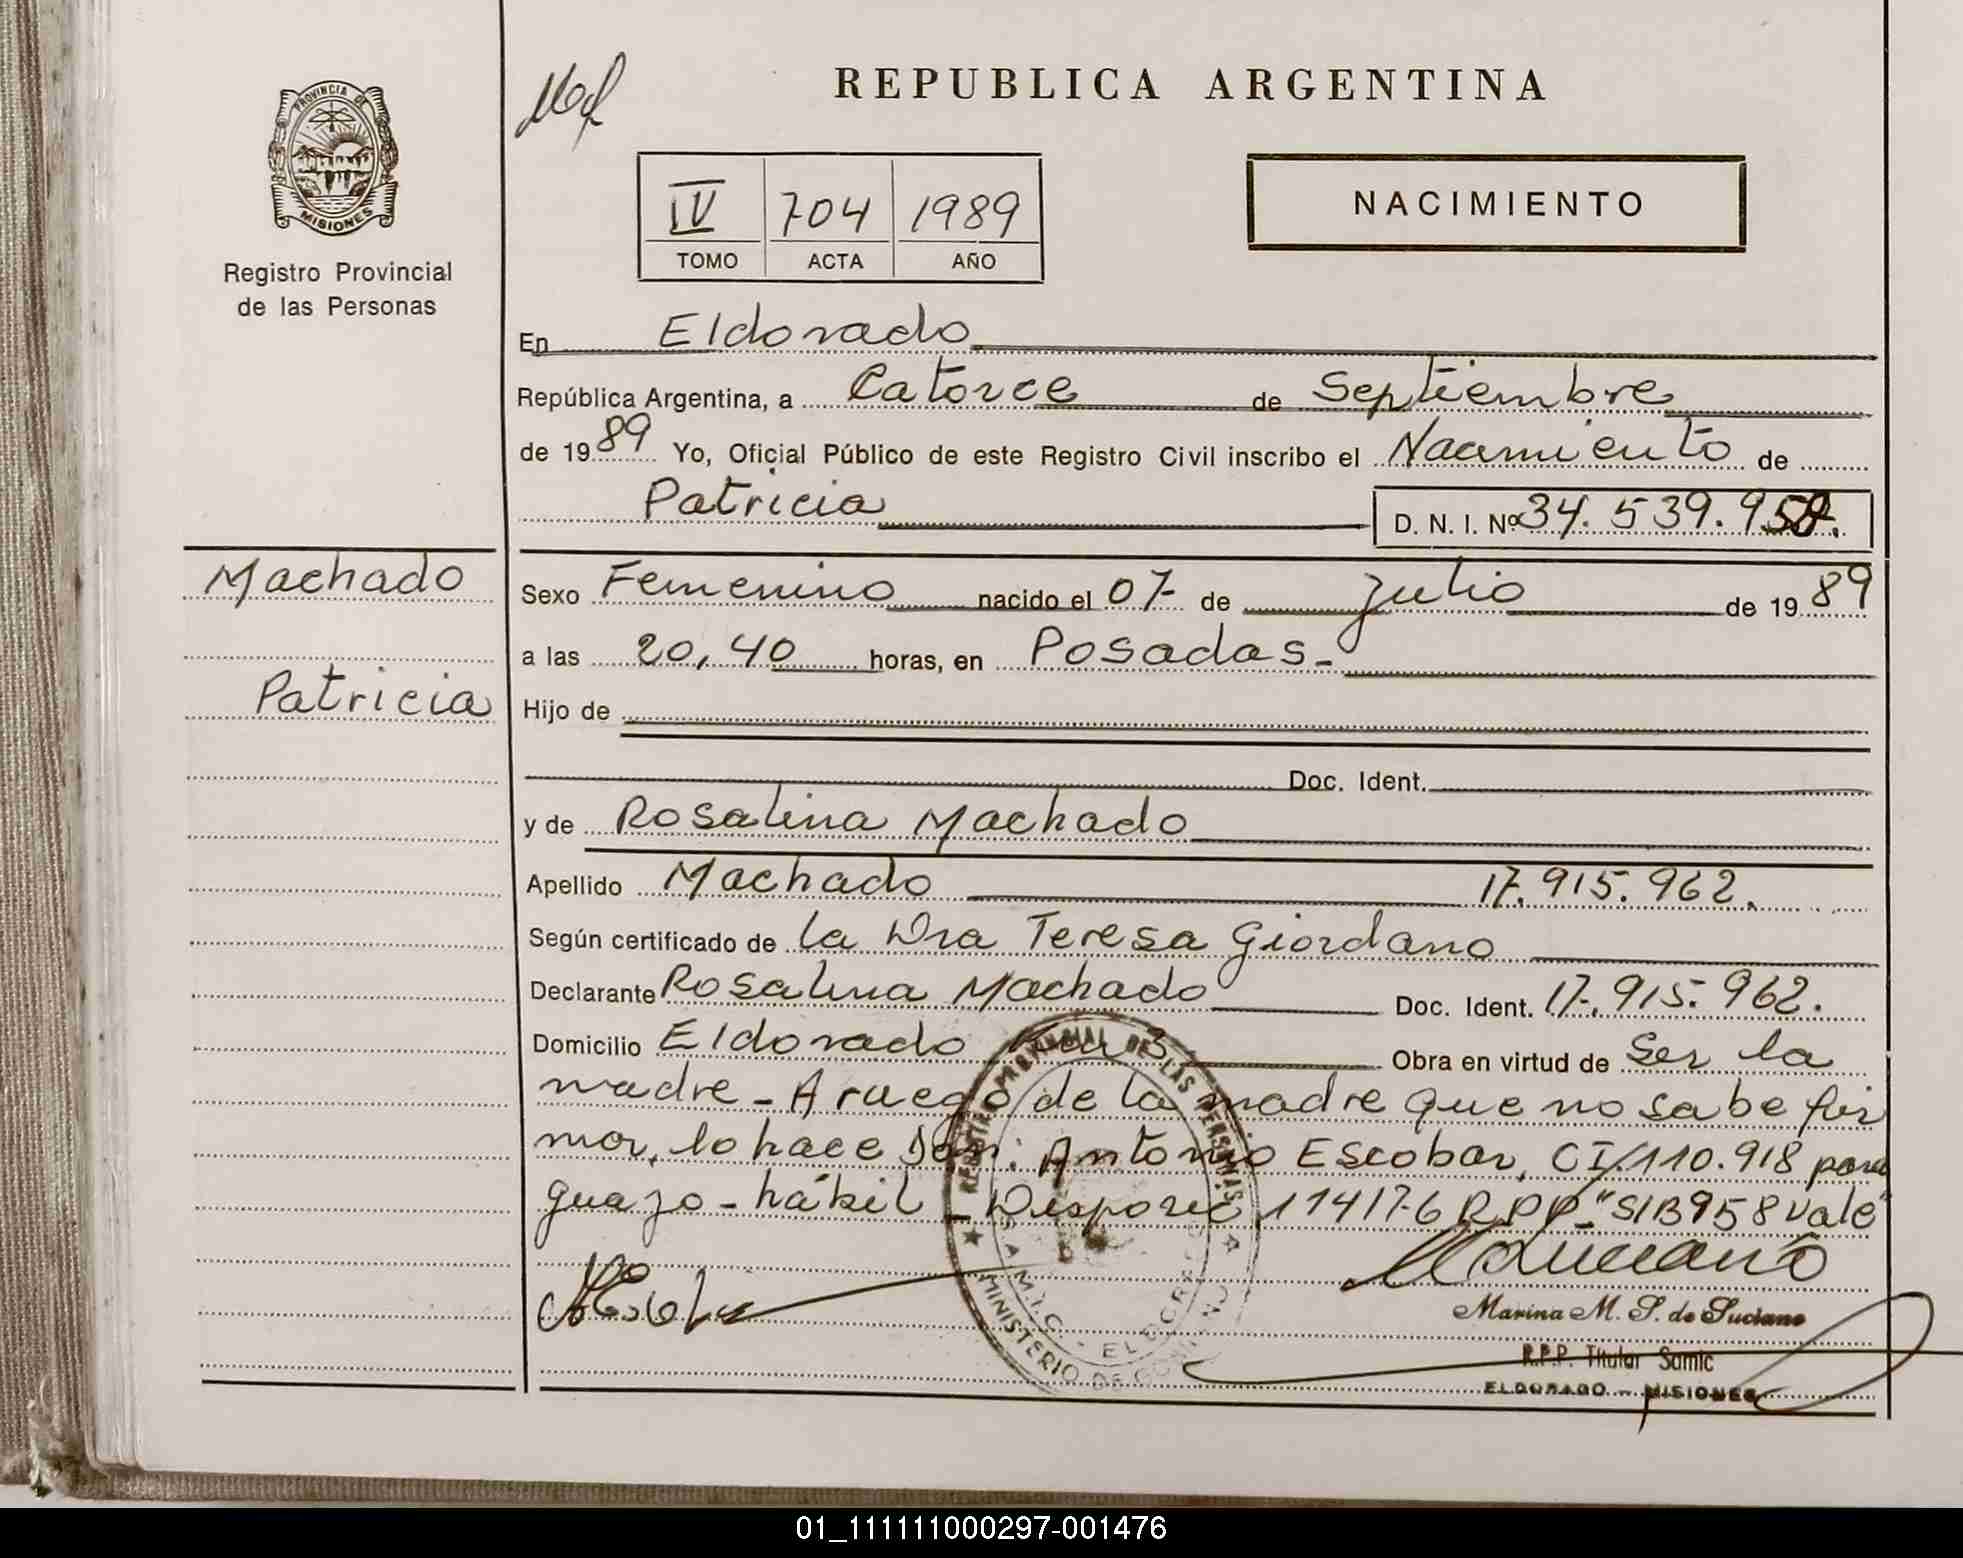 REPUBLICA ARGENTINA
PROVINCIA DE
MISIONES
Registro Provincial
de las Personas
IV 704 1989
TOMO ACTA AÑO
NACIMIENTO
En Eldorado
República Argentina, a Catorce de Septiembre
de 1989 Yo, Oficial Público de este Registro Civil inscribo el Nacimiento de
Patricia D. N. I. Nº 34.539.958.
Machado
Patricia
Sexo Femenino nacido el 07 de Julio de 1989
a las 20,40 horas, en Posadas-
Hijo de
Doc. Ident.
y de Rosalina Machado
Apellido Machado 17.915.962.
Según certificado de la Dra Teresa Giordano
Declarante Rosalina Machado Doc. Ident. 17.915.962.
Domicilio Eldorado Km 3 Obra en virtud de Ser la
madre - A ruego de la madre que no sabe fir
mar, lo hace Don: Antonio Escobar, CI/110.918 para
guayo - hábil - Disposic 114176 R.P.P. "S/B958 vale"
REGISTRO PROVINCIAL DE LAS PERSONAS
S.A.M.I.C. - ELDORADO
MINISTERIO DE GOBIERNO
Marina M. S. de Luciano
R.P.P. Titular Samic
ELDORADO - MISIONES
01_111111000297-001476